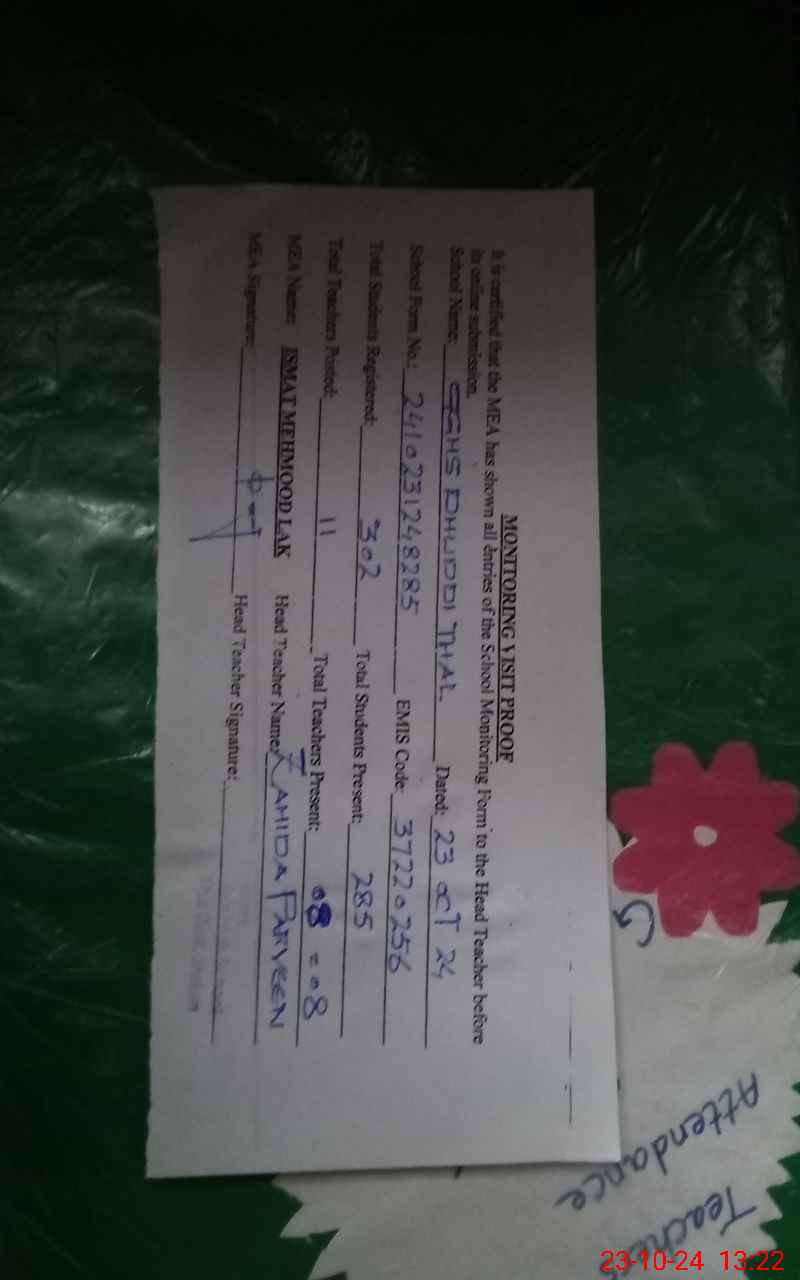 MONITORING VISIT PROOF
It is certified that the MEA has shown all entries of the School Monitoring Form to the Head Teacher before
its online submission.
School Name: GGHS DHUDDI THAL Dated: 23 OCT 24
School Form No.: 2410231248285 EMIS Code: 37220256
Total Students Registered: 302 Total Students Present: 285
Total Teachers Posted: 11 Total Teachers Present: 08 = 08
MEA Name: ISMAT MEHMOOD LAK Head Teacher Name: ZAHIDA PARVEEN
MEA Signature: Head Teacher Signature:
Teachers
Attendance
23-10-24 13:22